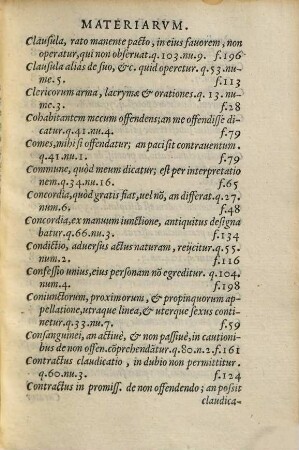 MATERIARVM.
Clausula, rato manente pacto, in eius fauorem, non
operatur, qui non obseruat. q. 103. nu. 9. f. 196
Clausula alias de suo, &c. quid operetur. q. 53. nu-
me. 5. f. 113
Clericorum arma, lacrymæ & orationes. q. 13. nu-
me. 3. f. 28
Cohabitantem mecum offendens; an me offendisse di-
catur. q. 41. nu. 4. f. 79
Comes, mihi si offendatur; an paci sit contrauentum.
q. 41. nu. 1. f. 79
Commune, quòd meum dicatur; est per interpretatio
nem. q. 34. nu. 16. f. 65
Concordia, quòd gratis fiat, uel nō, an differat. q. 27.
num. 6. f. 48
Concordia, ex manuum iunctione, antiquitus designa
batur. q. 66. nu. 3. f. 134
Conditio, aduersus actus naturam, reijcitur. q. 55.
num. 2. f. 116
Confessio unius, eius personam nō egreditur. q. 104.
num. 4. f. 198
Coniunctorum, proximorum, & propinquorum ap-
pellatione, utraque linea, & uterque sexus conti-
netur. q. 33. nu. 7. f. 59
Consanguinei, an actiuè, & non passiuè, in cautioni-
bus de non offen. cōprehendātur. q. 80. n. 2. f. 161
Contractus claudicatio, in dubio non permittitur.
q. 60. nu. 3. f. 124
Contractus in promiss. de non offendendo; an possit
claudica-